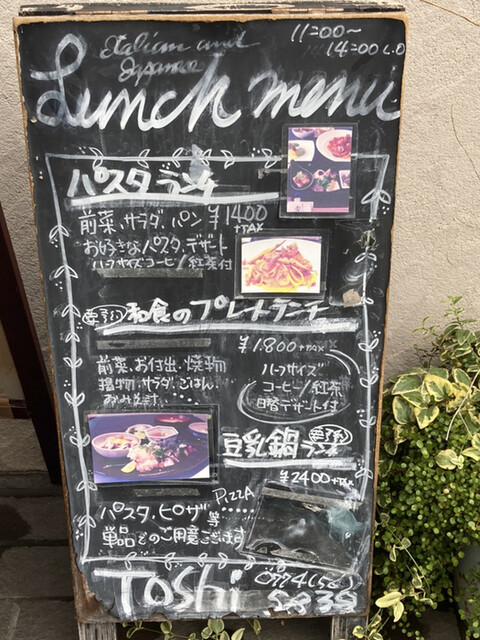 Italian and
Japanese
11:00~
14:00 L.O
Lunch menu
パスタランチ
前菜、サラダ、パン ¥1400
+TAX
お好きなパスタ、デザート
ハーフサイズコーヒー/紅茶付
要予約 和食のプレートランチ
¥1.800+TAX
前菜、お付出、焼物
揚物、サラダ、ごはん
おみそ汁
ハーフサイズ
コーヒー/紅茶
日替デザート付
豆乳鍋ランチ 要予約
¥2400+TAX
PIZZA
パスタ、ピザ等
単品でのご用意ございます
TOSHI 0774(56)
5835